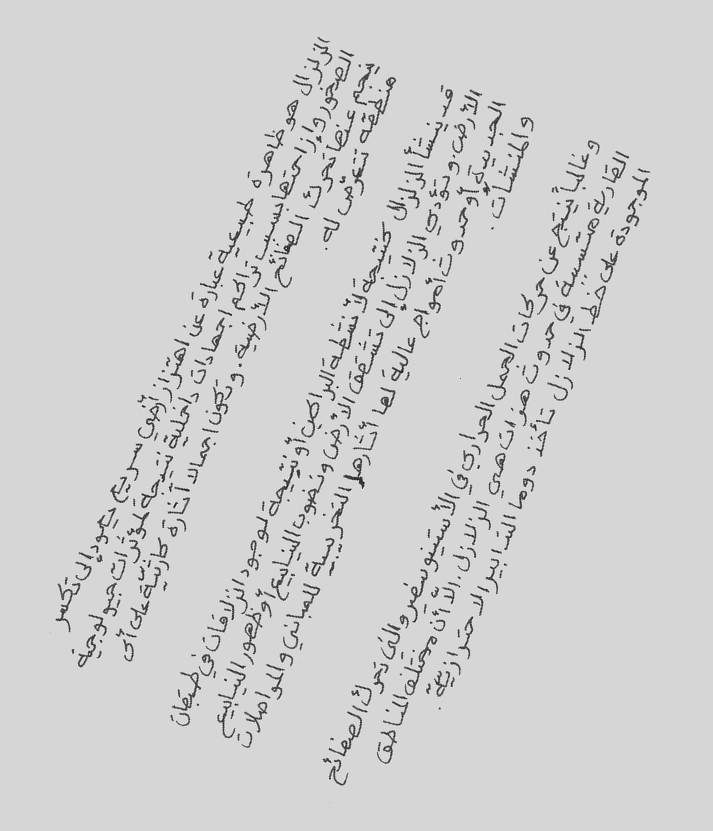 الزلزال هو ظاهرة طبيعية عبارة عن اهتزاز أرضي سريع يعود إلى تكسر
الصخور وإزاحتها بسبب تراكم اجهادات داخلية نتيجة لمؤثرات جيولوجية
ينجم عنها تحرك الصفائح الأرضية. وتكون اجمالا آثاره كارثية على أي
منطقة تتعرض له.
قد ينشأ الزلزال كنتيجة لأنشطة البراكين أو نتيجة لوجود انزلاقات في طبقات
الأرض. وتؤدي الزلازل إلى تشقق الأرض ونضوب الينابيع أو ظهور الينابيع
الجديدة أو حدوث أمواج عالية لها أثارها التخريبية للمباني والمواصلات
والمنشآت.
وغالباً ينتج عن حركات الحمل الحراري في الأستينوسفير والتي تحرك الصفائح
القارية متسببة في حدوث هزات هي الزلازل. الا أن مختلف المناطق
الموجودة على خط الزلازل تأخذ دوما التدابير الاحترازية.